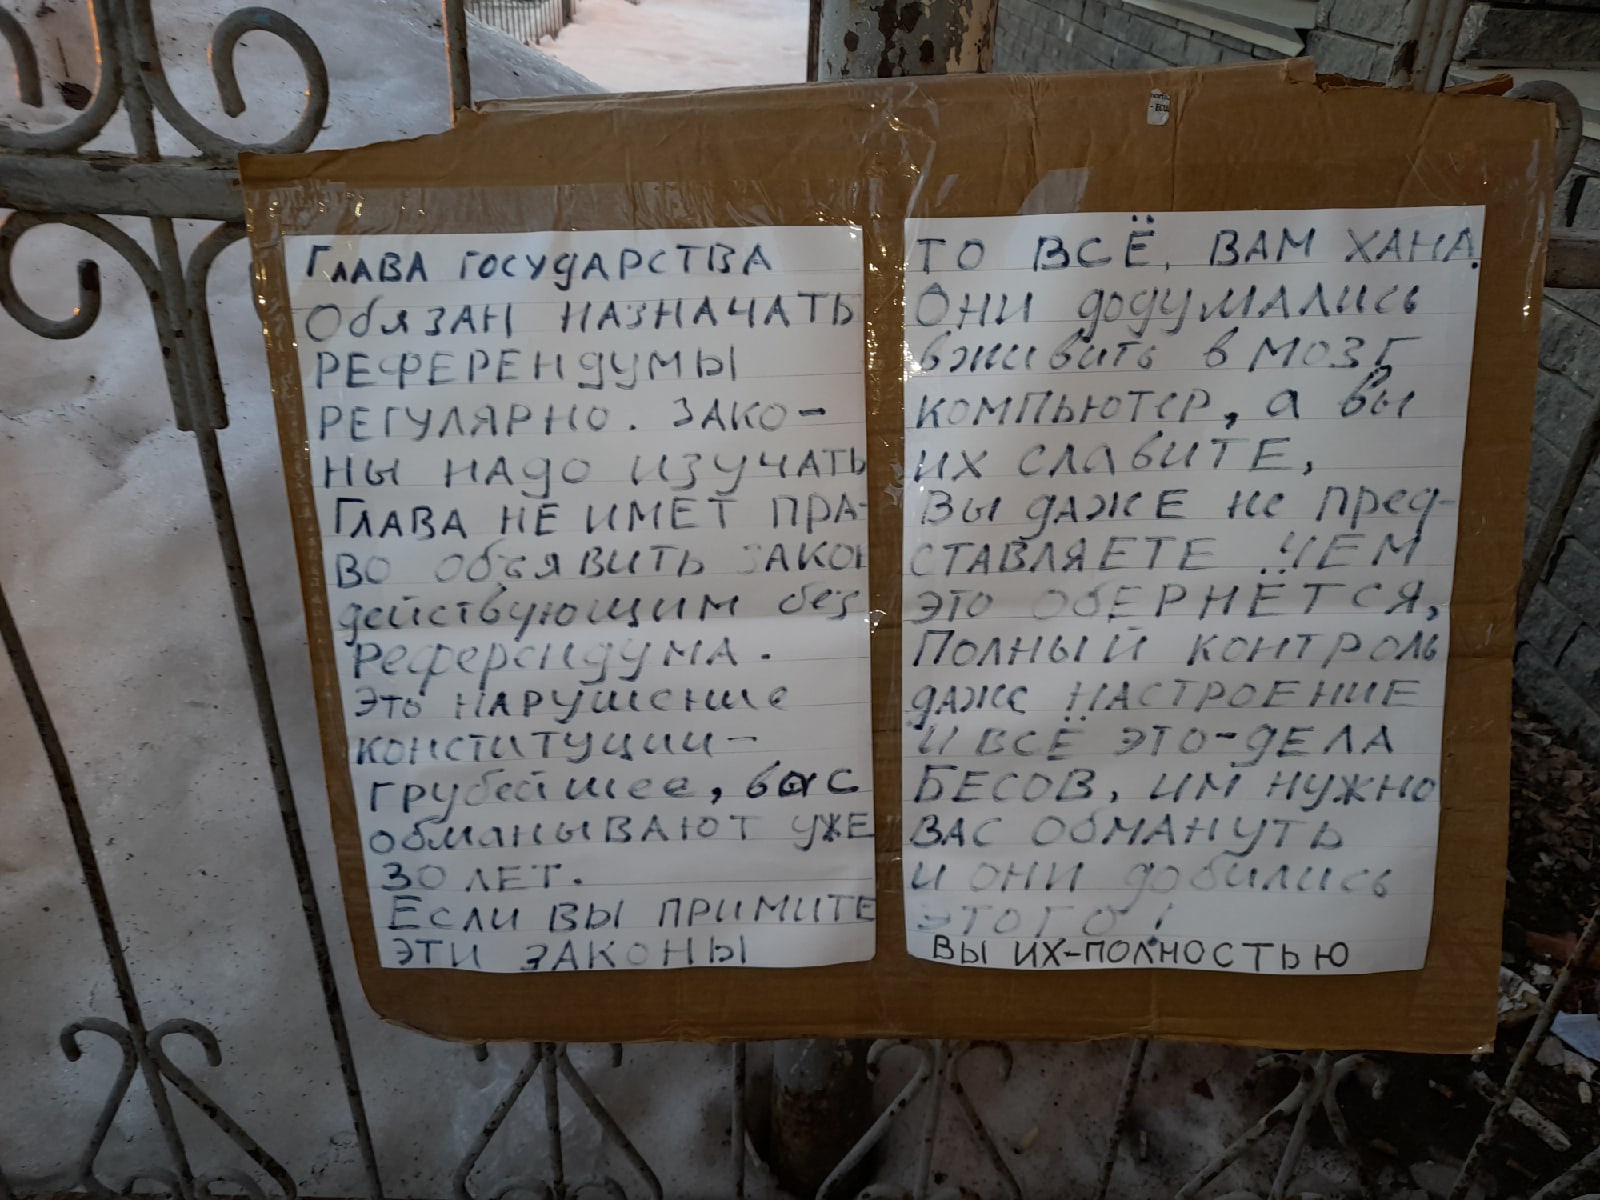 ГЛАВА ГОСУДАРСТВА
ОбЯЗАН НАЗНАЧАТЬ
РЕФЕРЕНДУМЫ
РЕГУЛЯРНО. ЗАКО-
НЫ НАДО ИЗУЧАТЬ
ГЛАВА НЕ ИМЕТ ПРА-
ВО ОбъЯВИТЬ ЗАКОН
действующим без
РЕФЕРЕНДУМА.
Это НАРУШЕНИЕ
КОНСТИТУЦИИ-
грубейшее, вас
обманыВАЮТ УЖЕ
30 ЛЕТ.
ЕСЛИ ВЫ ПРИМИТЕ
ЭТИ ЗАКОНЫ
ТО ВСЁ, ВАМ ХАНА.
ОНИ додУМАЛИСЬ
вживить в МОЗГ
КОМПЬЮТЕР, а вы
ИХ СЛАВИТЕ,
ВЫ ДАЖЕ не пред-
СТАВЛЯЕТЕ ЧЕМ
ЭТО ОБЕРНЁТСЯ,
ПОЛНЫЙ КОНТРОЛЬ
ДАЖЕ НАСТРОЕНИЕ
И ВСЁ ЭТО-ДЕЛА
БЕСОВ, ИМ НУЖНО
ВАС ОБМАНУТЬ
И ОНИ добились
ЭТОГО!
ВЫ ИХ-ПОЛНОСТЬЮ